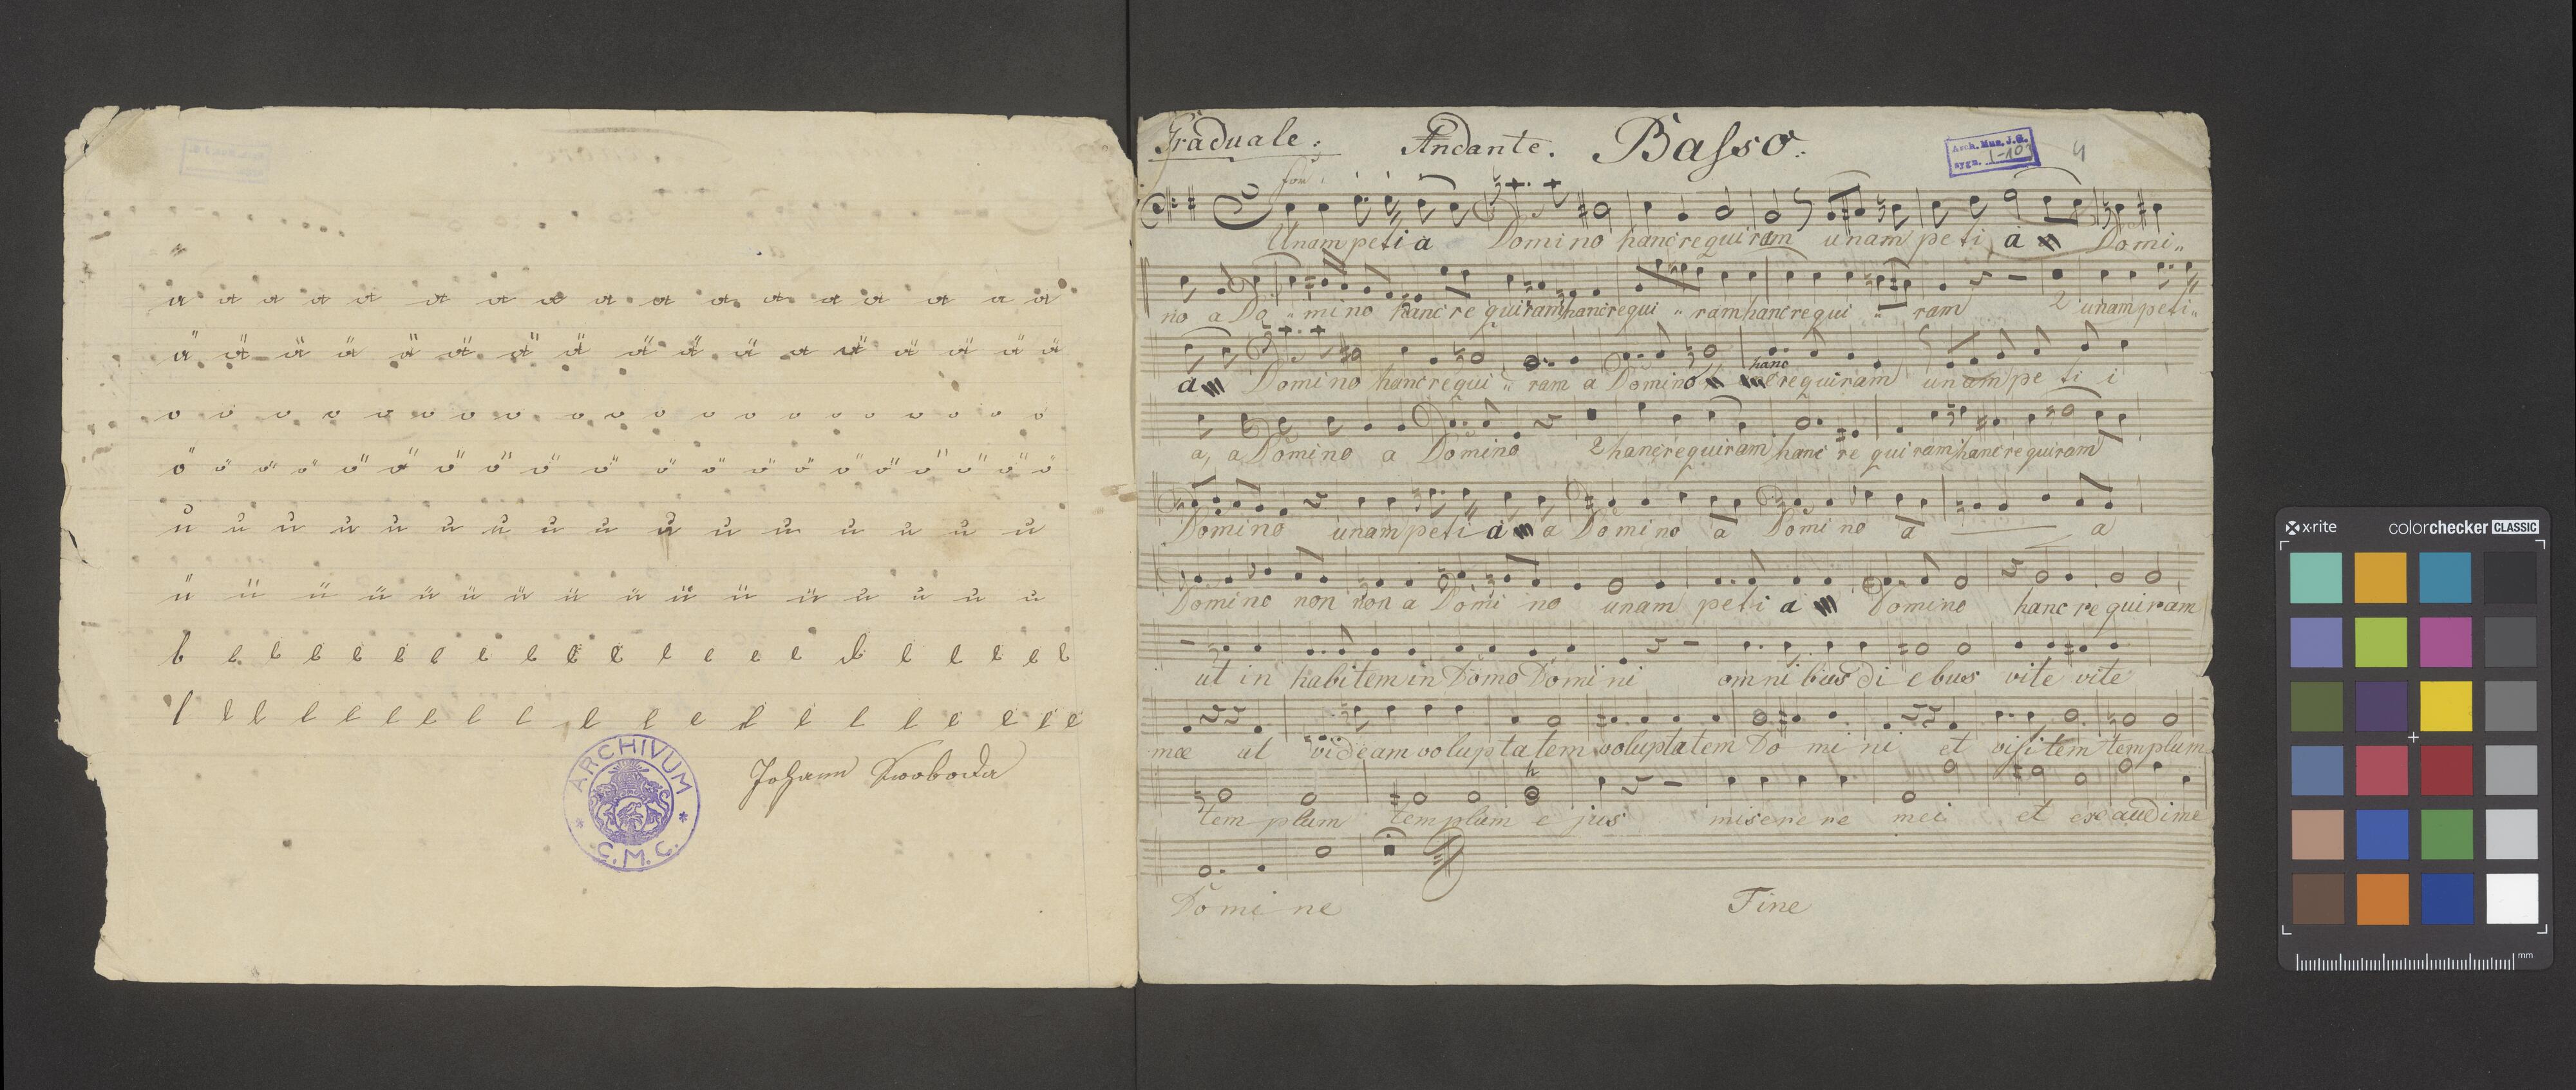 a a a a a a a a a a a a a a a a a
ä ä ä ä ä ä ä ä ä ä ä a ä ä ä ä ä
o o o o o o o o o o o o o o o o o o o
ö ö ö ö ö ö ö ö ö ö ö ö ö ö ö ö ö ö ö ö
ŭ ŭ ŭ ŭ ŭ ŭ ŭ ŭ ŭ ŭ ŭ ŭ ŭ ŭ ŭ ŭ
ü ü ü ü ü ü ü ü ü ü ü ü ŭ ŭ ŭ ŭ
Johann Swoboda
ARCHIVUM
* C.M.C. *
Graduale: Andante. Basso:
Arch. Muz. J.G.
sygn. I-103
4
Unam peti a Domino hanc requiram unam peti a Domi„
no a Do „ mino hanc re quiram hanc requi „ ram hanc requi „ ram 2 unam peti„
a Domino hanc requi „ ram a Domino hanc requiram unam pe ti i
a, a Domino a Domino 2 hanc requiram hanc re quiram hanc requiram
Domino unam peti a a Domino a Domino a a
Domine non non a Domi no unam peti a Domine hanc requiram
ut in habitem in Domo Domini omnibus di ebus vite vite
mae ut videam voluptatem voluptatem Do mi ni et visitem templum
tem plum templum e jus miserere mei et exaudi me
Domi ne Fine
x·rite colorchecker CLASSIC
mm